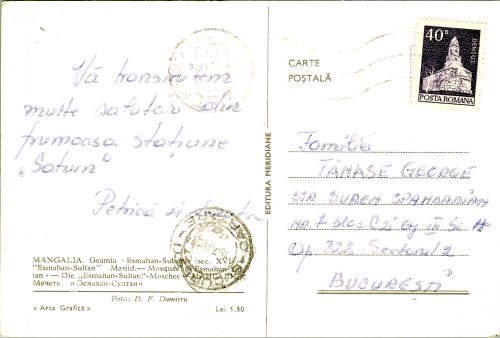 Vă transmitem
multe salutări din
frumoasa stațiune
„Saturn"
Petrică și
MANGALIA. Geamia „Esmahan-Sultan" (sec. XVI)
"Esmahan-Sultan" Masjid.— Mosquée Esmahan-
tan « — Die „Esmahan-Sultan"-Moschee
Мечеть » Эсмахан-Султан «
Foto: D. F. Dumitru
« Arta Grafică » Lei 1.50
EDITURA MERIDIANE
CARTE
POȘTALĂ
40 B
DENSUȘ
POSTA ROMANA
Familia
TĂNASE GEORGE
STR. SUREN SPANDARIAN
Nr 7 bloc C2 III
Ap 322 Sectorul 2
BUCUREȘTI